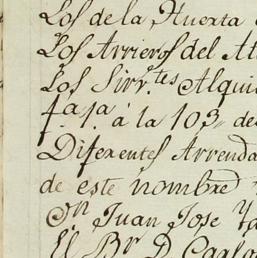 Los de la Huerta
Los Arrieros del
Los Sirv.tes Alqui
f.a 1.a á la 103
Diferentes Arrenda
de este nombre
Juan Jose
El Br D. Carlo